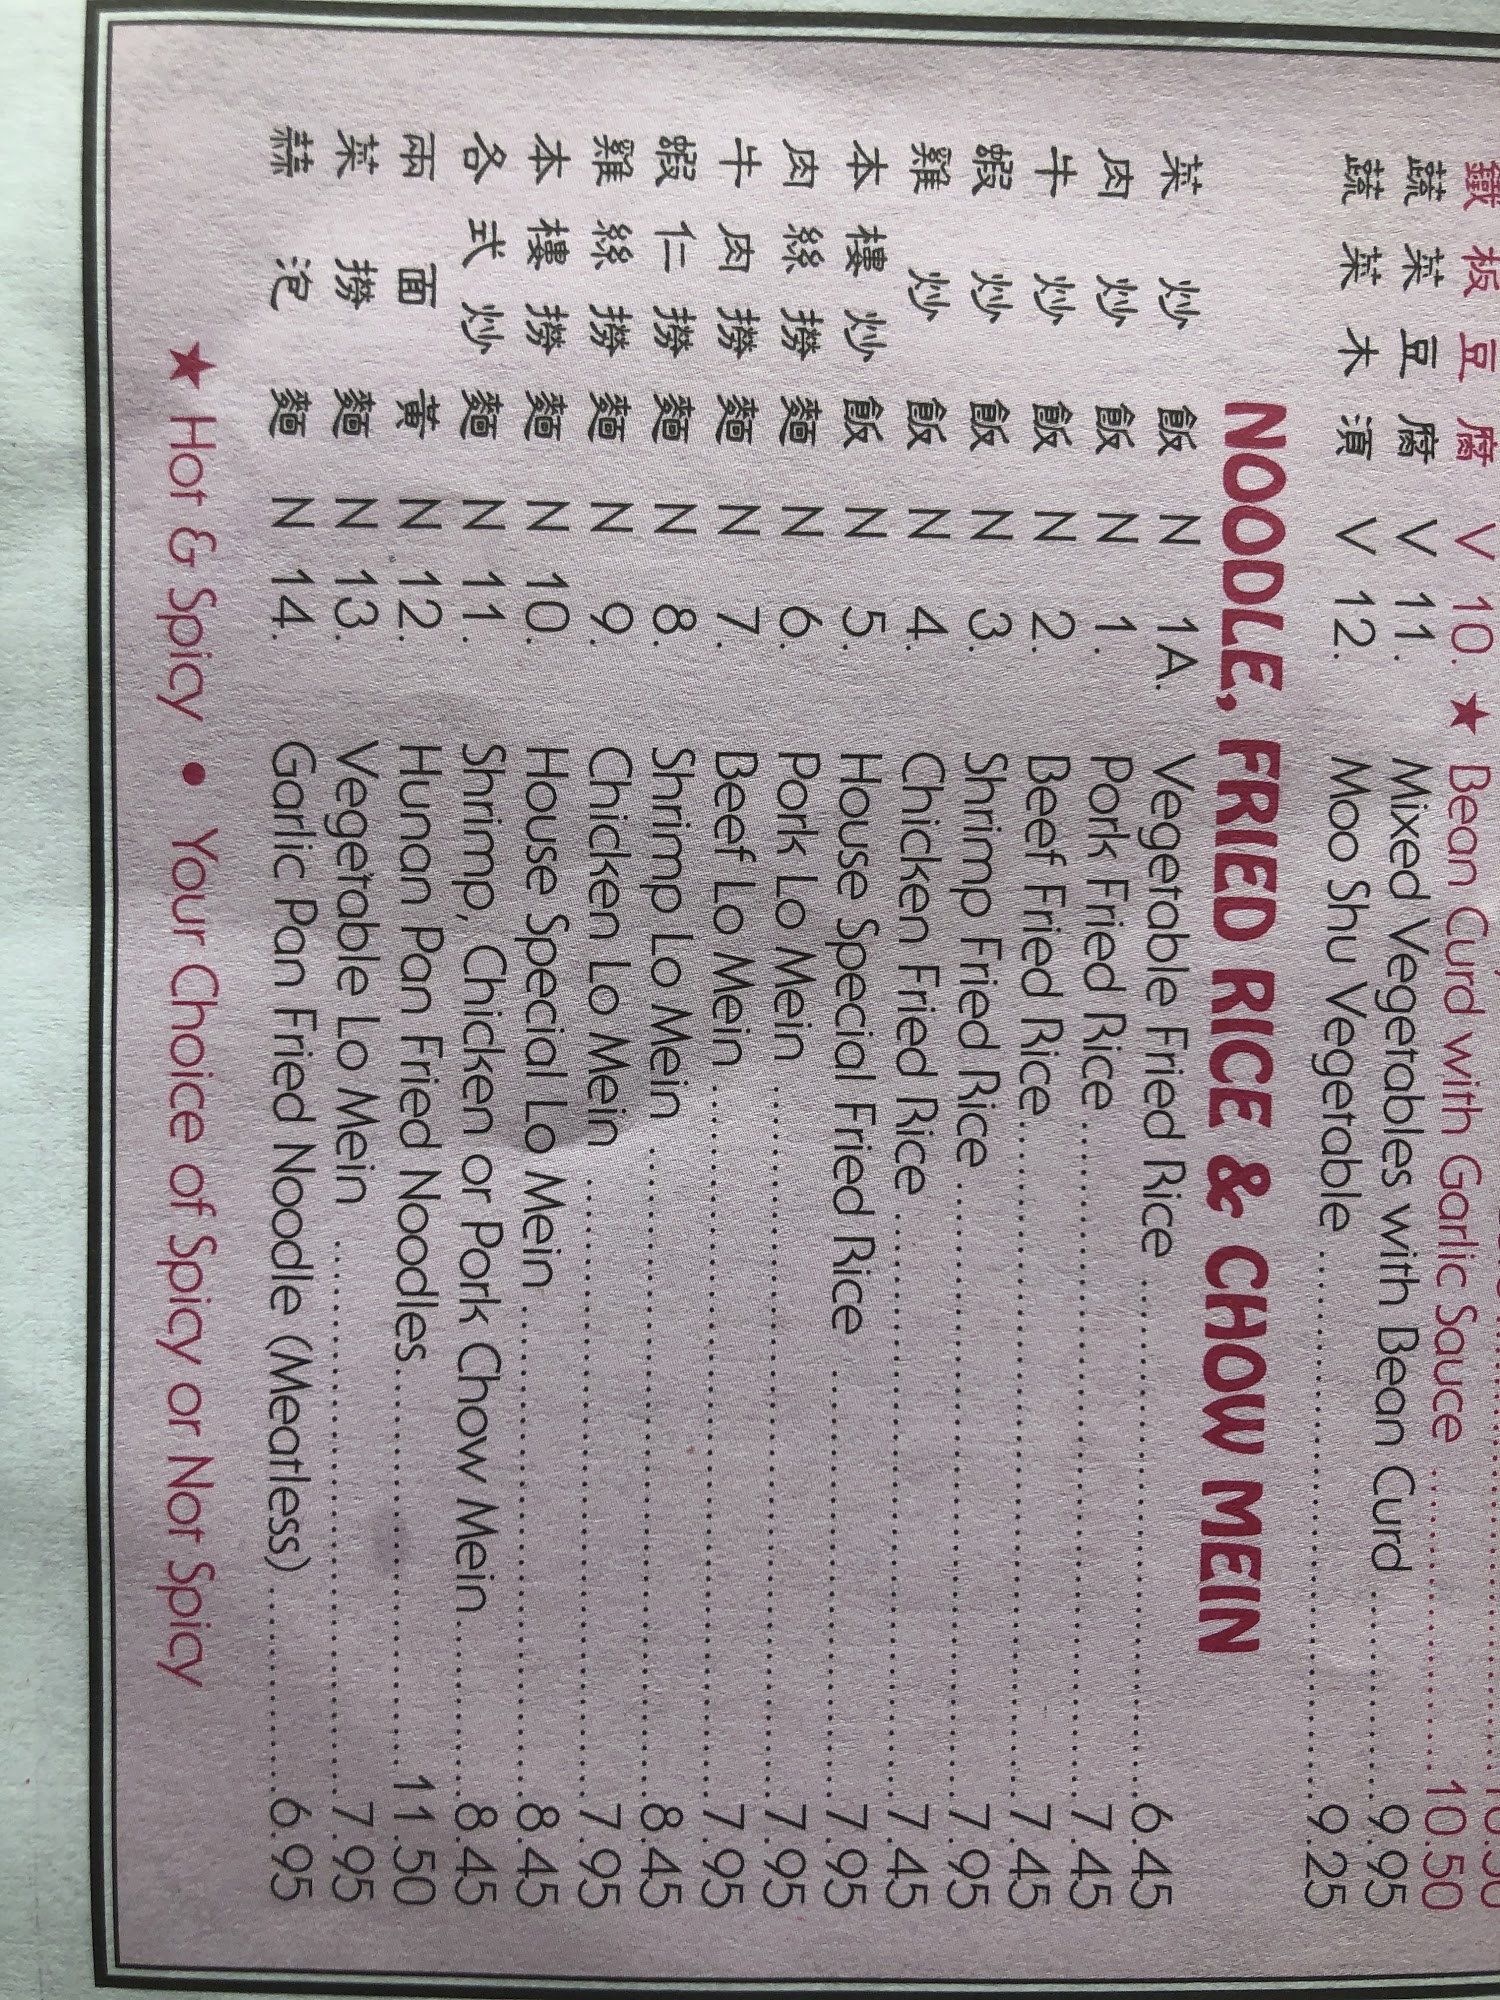 鐵板豆腐 V 10. ★ Bean Curd with Garlic Sauce 10.50
蔬菜豆腐 V 11. Mixed Vegetables with Bean Curd 9.95
蔬菜木須 V 12. Moo Shu Vegetable 9.25
NOODLE, FRIED RICE & CHOW MEIN
菜炒飯 N 1A. Vegetable Fried Rice 6.45
肉炒飯 N 1. Pork Fried Rice 7.45
牛炒飯 N 2. Beef Fried Rice 7.45
蝦炒飯 N 3. Shrimp Fried Rice 7.95
雞炒飯 N 4. Chicken Fried Rice 7.45
本樓炒飯 N 5. House Special Fried Rice 7.95
肉絲撈麵 N 6. Pork Lo Mein 7.95
牛肉撈麵 N 7. Beef Lo Mein 7.95
蝦仁撈麵 N 8. Shrimp Lo Mein 8.45
雞絲撈麵 N 9. Chicken Lo Mein 7.95
本樓撈麵 N 10. House Special Lo Mein 8.45
各式炒麵 N 11. Shrimp, Chicken or Pork Chow Mein 8.45
兩面黃 N 12. Hunan Pan Fried Noodles 11.50
菜撈麵 N 13. Vegetable Lo Mein 7.95
蒜泡麵 N 14. Garlic Pan Fried Noodle (Meatless) 6.95
★ Hot & Spicy • Your Choice of Spicy or Not Spicy